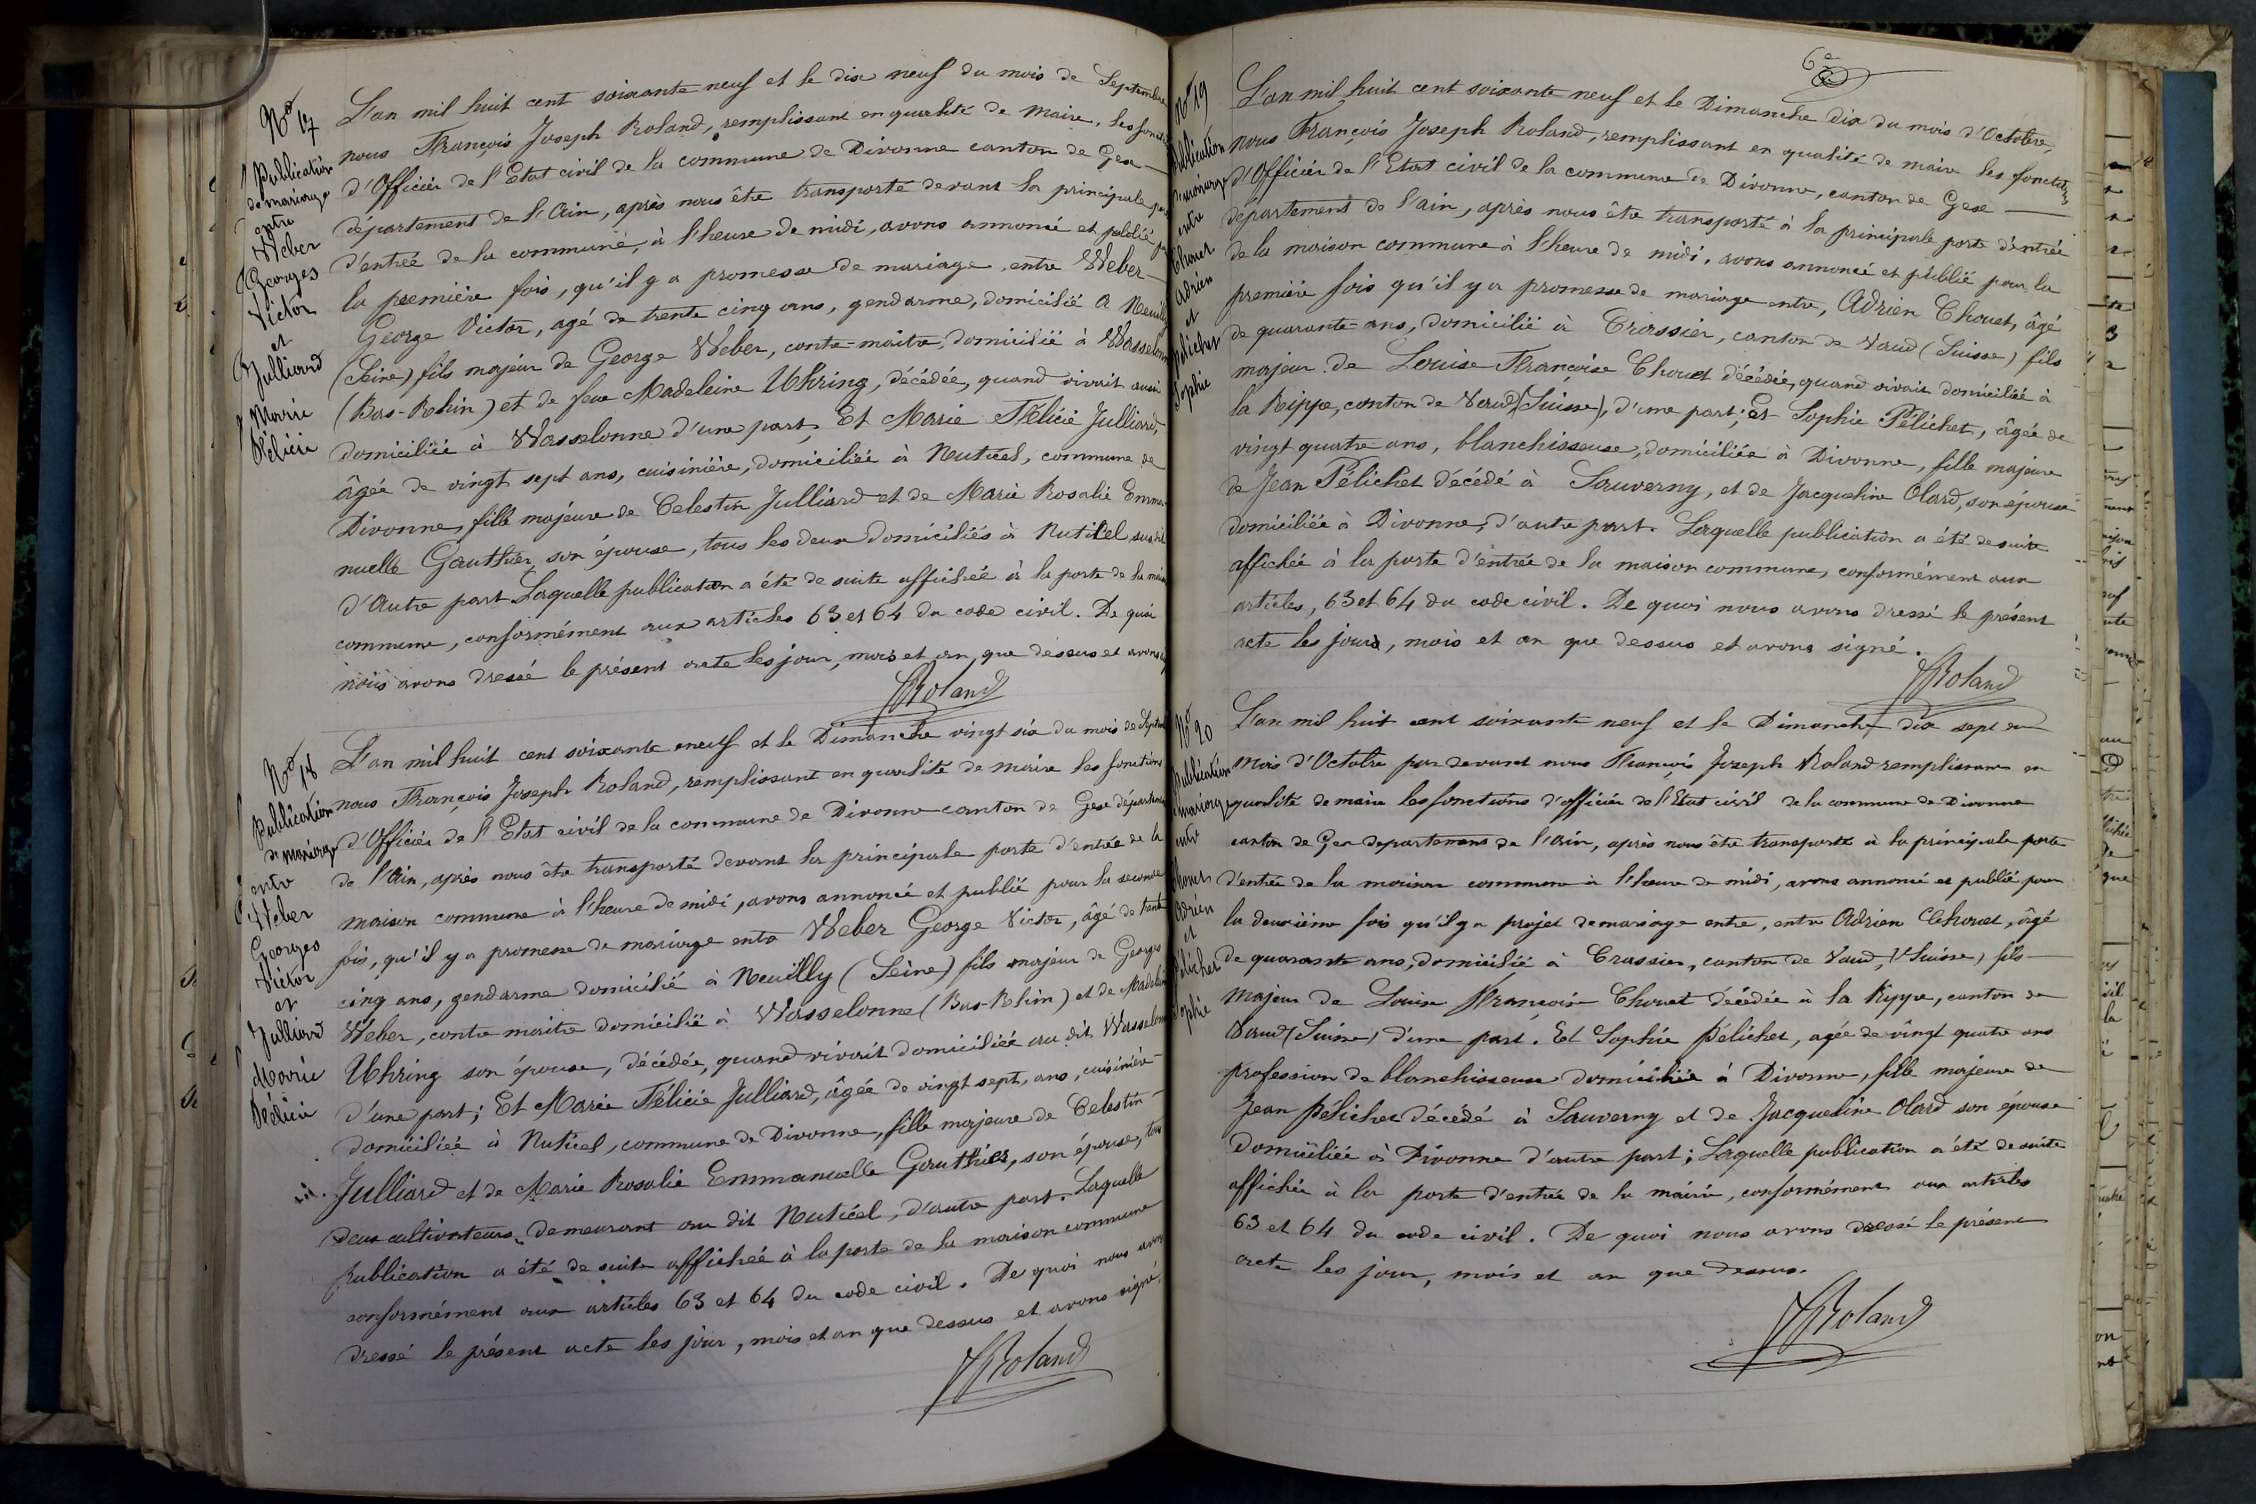 No 17
Publication
de mariage
entre
Weber
Georges
Victor
et
Julliard
Marie
Félicie
L'an mil huit cent soixante neuf et le dix neuf du mois de Septembre
nous François Joseph Roland, remplissant en qualité de Maire, les
d'Officier de l'Etat civil de la commune de Divonne canton de Gex
département de l'Ain, après nous être transporté devant la principale
d'entrée de la commune, à l'heure de midi, avons annoncé et publié
la première fois, qu'il y a promesse de mariage entre Weber
George Victor, agé de trente cinq ans, gendarme, domicilié à Neuilly
(Seine) fils majeur de George Weber, contre-maitre, domicilié à
(Bas-Rhin) et de feue Madeleine Uhring, décédée, quand vivait aussi
domiciliée à Wasselonne d'une part, Et Marie Félicie Julliard,
âgée de vingt sept ans, cuisinière, domiciliée à Naticel, commune de
Divonne, fille majeure de Celestin Julliard et de Marie Rosalie Emma-
nuelle Gauthier, son épouse, tous les deux domiciliés à
d'autre part Laquelle publication a été de suite affichée à la porte de la
commune, conformément aux articles 63 et 64 du code civil. De quoi
nous avons dressé le présent acte les jour, mois et an que dessus et avons
FRoland
No 18
Publication
de mariage
entre
Weber
Georges
Victor
et
Julliard
Marie
Félicie
L'an mil huit cent soixante neuf et le Dimanche vingt six du mois de
nous François Joseph Roland, remplissant en qualité de maire les fonctions
d'Officier de l'Etat civil de la commune de Divonne canton de Gex
de l'Ain, après nous être transporté devant la principale porte d'entrée de la
maison commune à l'heure de midi, avons annoncé et publié pour la seconde
fois, qu'il y a promesse de mariage entre Weber George Victor, âgé de trente
cinq ans, gendarme domicilié à Neuïlly (Seine) fils majeur de George
Weber, contre maitre domicilié à Wasselonne (Bas-Rhin) et de
Uhring son épouse, décédée, quand vivait domiciliée au dit
d'une part; Et Marie Félicie Julliard, âgée de vingt sept, ans, cuisinière
domiciliée à Naticel, commune de Divonne, fille majeure de Celestin
Julliard et de Marie Rosalie Emmanuelle Gauthier, son épouse, tous
deux cultivateurs, demeurant au dit Naticel, d'autre part. Laquelle
publication a été de suite affichée à la porte de la maison commune
conformément aux articles 63 et 64 du code civil. De quoi nous avons
dressé le présent acte les jour, mois et an que dessus et avons signé.
FRoland
No 19
Publication
de mariage
entre
Chouet
Adrien
et
Pélichet
Sophie
L'an mil huit cent soixante neuf et le Dimanche dix du mois d'Octobre,
nous François Joseph Roland, remplissant en qualité de maire les
d'Officier de l'Etat civil de la commune de Divonne, canton de Gex
département de l'ain, après nous être transporté à la principale porte d'entrée
de la maison commune à l'heure de midi, avons annoncé et publié pour la
première fois qu'il y a promesse de mariage entre, Adrien Chouet, âgé
de quarante ans, domicilié à Crassier, canton de Vaud (Suisse) fils
majeur de Louise Françoise Chouet décédée, quand vivait domiciliée à
la Rippe, canton de Vaud (Suisse), d'une part; Et Sophie Pélichet, âgée de
vingt quatre ans, blanchisseuse, domiciliée à Divonne, fille majeure
de Jean Pélichet décédé à Sauverny, et de Jacqueline Olard, son épouse
domiciliée à Divonne, d'autre part. Laquelle publication a été de suite
affichée à la porte d'entrée de la maison commune, conformément aux
articles, 63 et 64 du code civil. De quoi nous avons dressé le présent
acte les jours, mois et an que dessus et avons signé.
FRoland
No 20
Publication
mariage
entre
Chouet
Adrien
et
Pélichet
Sophie
L'an mil huit cent soixante neuf et le Dimanche dix sept du
mois d'Octobre par devant nous François Joseph Roland remplissant en
qualité de maire les fonctions d'officier de l'Etat civil de la commune de Divonne
canton de Gex departement de l'ain, après nous être transporté à la principale porte
d'entrée de la maison commune à l'heure de midi, avons annoncé et publié pour
la deuxième fois qu'il y a projet de mariage entre, entre Adrien Chouet, âgé
de quarante ans, domicilié à Crassier, canton de Vaud, (Suisse) fils
majeur de Louise Françoise Chouet décédée à la Rippe, canton de
Vaud (Suisse) d'une part. Et Sophie Pélichet, agée de vingt quatre ans
profession de blanchisseuse domiciliée à Divonne, fille majeure de
Jean Pélichet décédé à Sauverny et de Jacqueline Olard son épouse
domiciliée à Divonne d'autre part; Laquelle publication a été de suite
affichée à la porte d'entrée de la mairie, conformément aux articles
63 et 64 du code civil. De quoi nous avons dressé le présent
acte les jour, mois et an que dessus.
FRoland